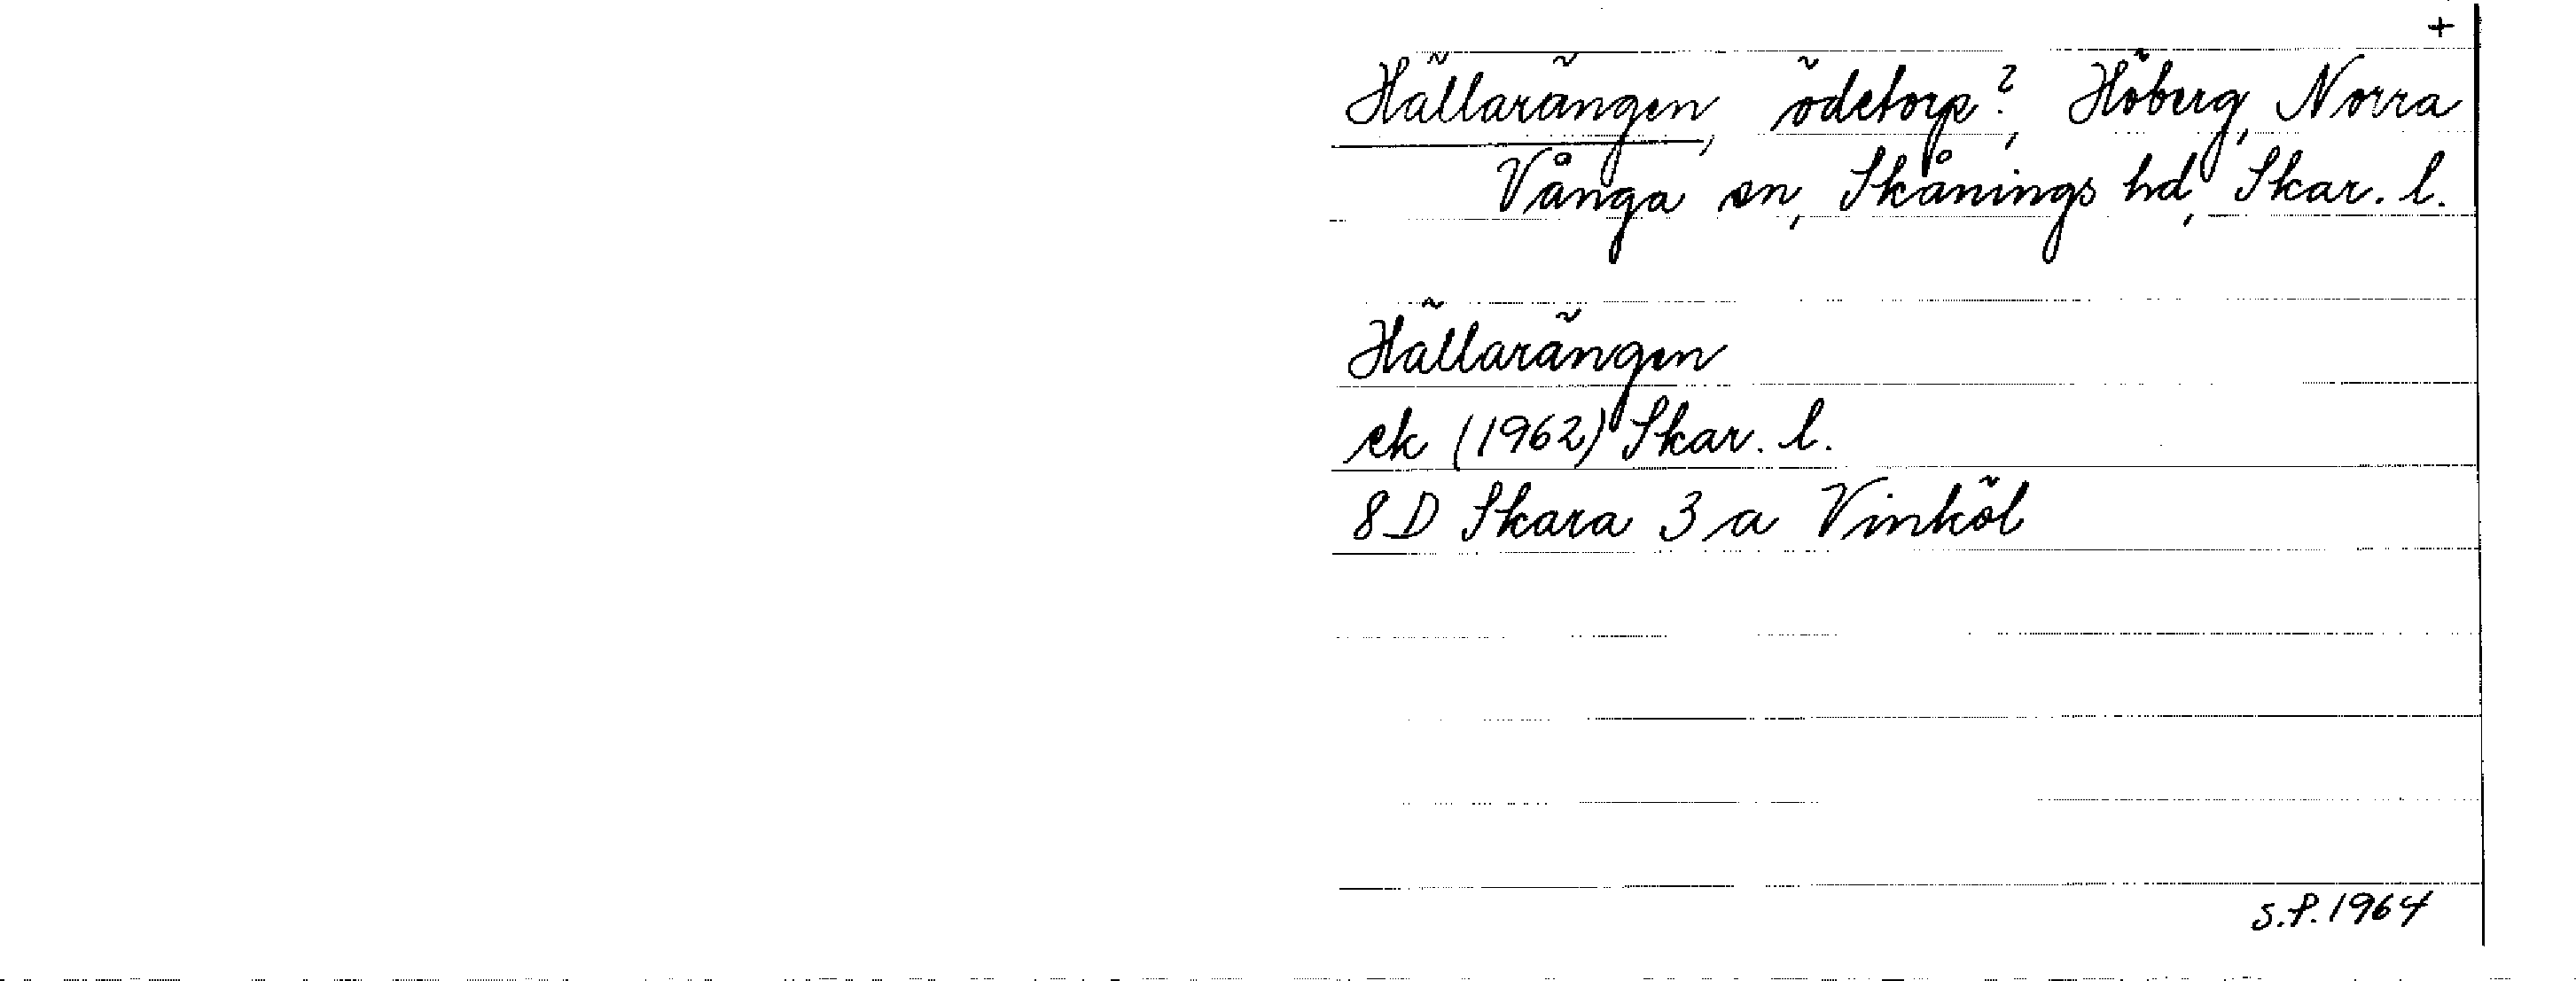 +
Hällarängen, ödetorp?, Höberg, Norra
Vånga sn, Skånings hd, Skar. l.
Hällarängen
ek (1962) Skar. l.
8D Skara 3 a Vinköl
S.P. 1964